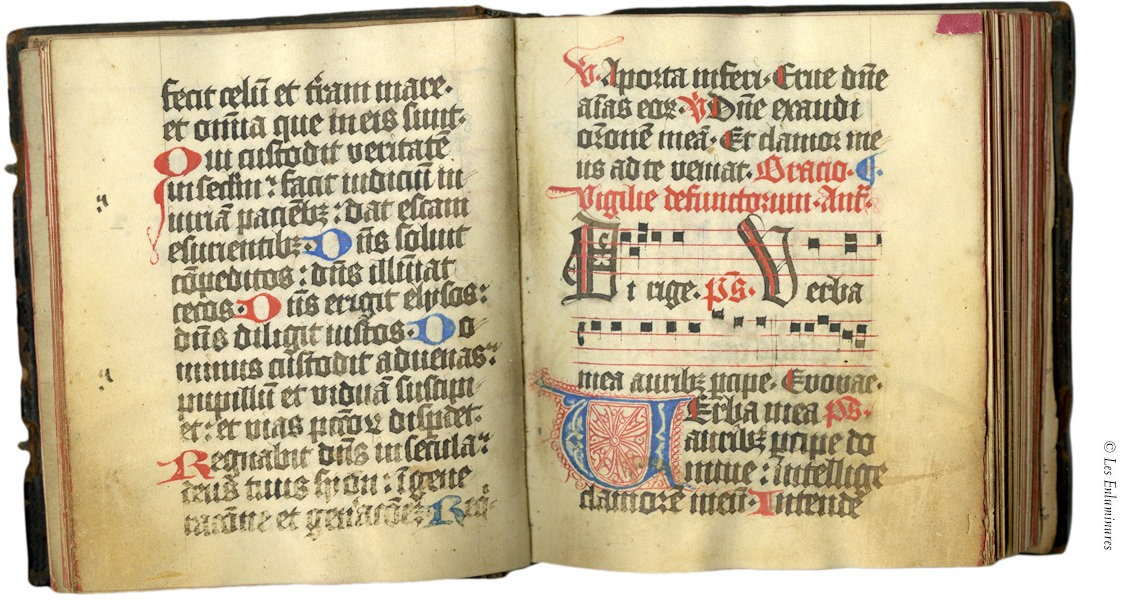 fecit celū et t̄ram mare·
et om̄ia que in eis sunt·
Qui custodit veritatē
in sec̄lm : facit iudiciū in
iuriā pacien̄bꝫ : dat escam
esurientibꝫ· Dn̄s soluit
cōpeditos : dn̄s illūiat
cecos· Dn̄s erigit elysos :
dn̄s diligit iustos· Do
minus custodit aduenas :
pupillū et viduā suscipi
et : et vias pctōꝝ dispdet·
Regnabit dn̄s in secula :
deus tuus syon : in gene
racōne et
℣· A porta inferi· Erue dn̄e
aīas eoꝝ· ℣ Dn̄e exaudi
orōnē meā· Et clamor me
us ad te veniat· Oracio·
Vigilie defunctorum· Anᵗ·
Dirige· ps̄· Verba
mea auribꝫ ꝑcipe· Euouae·
Verba mea ps̄·
auribꝫ ꝑcipe do
mine : intellige
clamorē meū· Intende
© Les Enluminures